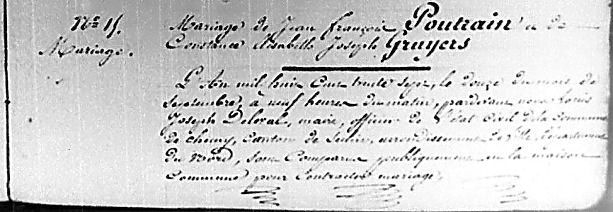 No 15.
Mariage.
Mariage de Jean françois Poutrain et de
Constance élisabeth Joseph Gruyers
L'An mil huit Cent trente seize, le douze du mois de
Septembre, à neuf heures du matin, pardevant nous
Joseph Deloval, maire, officier de l'état Civil de la commune
de Chemy, Canton de Seclin, arrondissement de Lille, Département
du Nord, sont Comparus publiquement en la maison
Commune pour Contracter mariage,